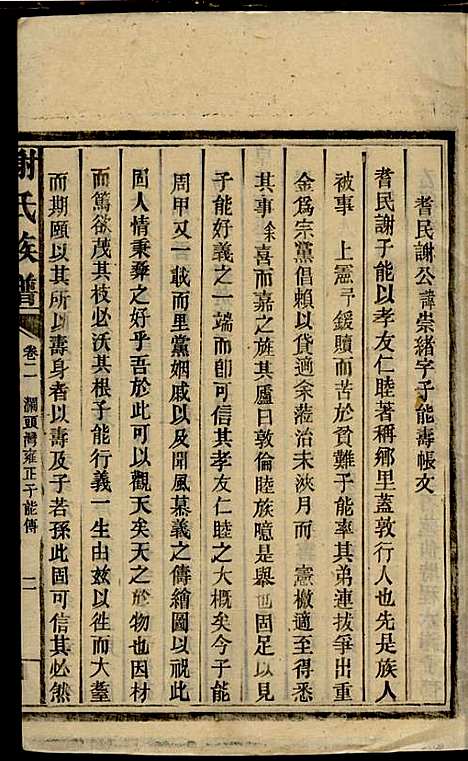 耆民謝公諱崇緒字子能壽帳文
耆民謝子能以孝友仁睦著稱鄉里蓋敦行人也先是族人
被事　上憲予鍰贖而苦於貧難子能率其弟連拔爭出重
金爲宗黨倡賴以貸適余蒞治未浹月而　憲檄適至得悉
其事余喜而嘉之旌其廬曰敦倫睦族噫是舉也固足以見
子能好義之一端而卽可信其孝友仁睦之大概矣今子能
周甲又一載而里黨姻戚以及聞風慕義之儔繪圖以祝此
固人情秉彝之好乎吾於此可以觀天矣天之於物也因材
而篤欲茂其枝必沃其根子能行義一生由玆以徃而大耋
而期頤以其所以壽身者以壽及子若孫此固可信其必然
謝氏族譜　卷二　瀾頭灣雍正子能傳　二